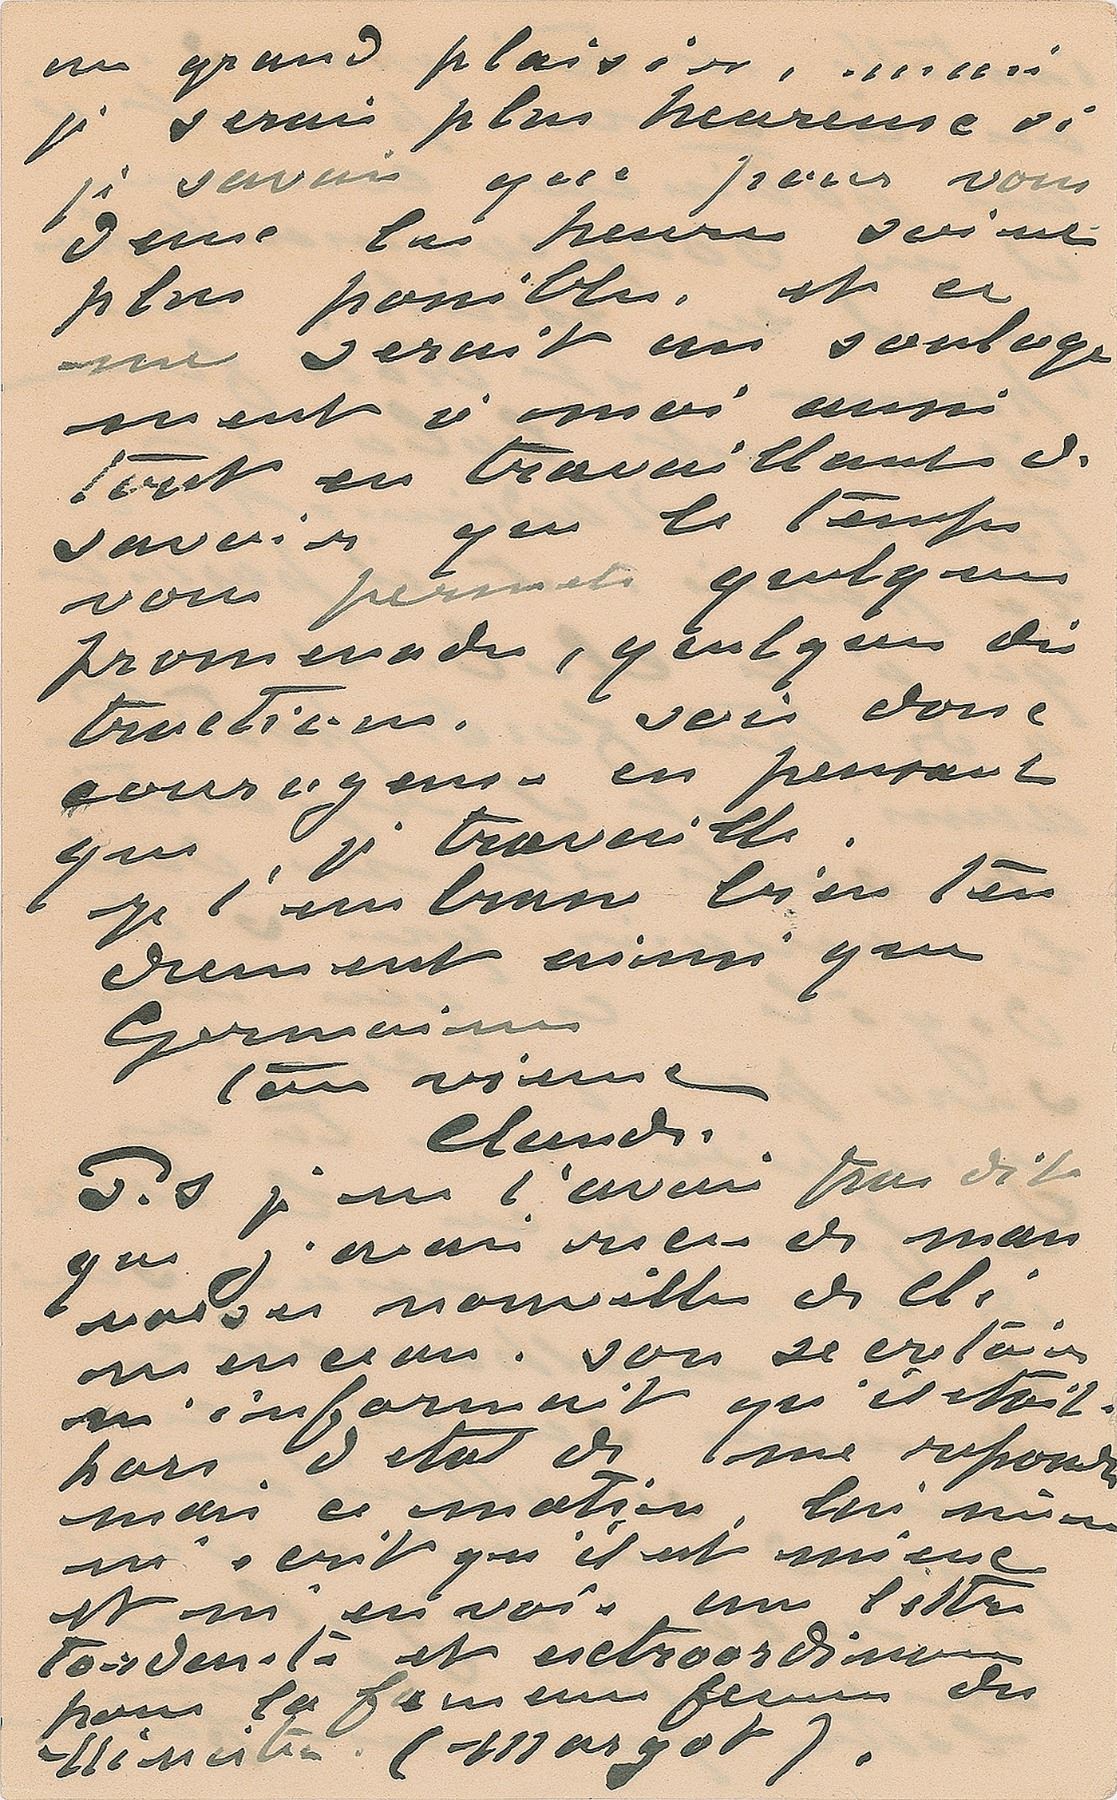 un grand plaisir, mais
je serais plus heureuse si
je savais que pour vous
deux les heures soient
plus possibles. et ce
me serait un soulage
ment à moi aussi
tout en travaillant de
savoir que le temps
vous permets quelques
promenades, quelques dis
tractions. sois donc
courageuse en pensant
que je travaille.
je t'embrasse bien ten
drement ainsi que
Germaine
ton vieux
Claude.
P.S je ne t'avais pas dit
que j'avais reçu de
nouvelles de Cle
menceau. son secretaire
m'informait qu'il etait
hors d'etat de me repondre
mais ce matin, lui même
m'ecrit qu'il est mieux
et m'envoie une lettre
tordante et extraordinaire
pour la fameuse femme du
Ministre. (Margot).